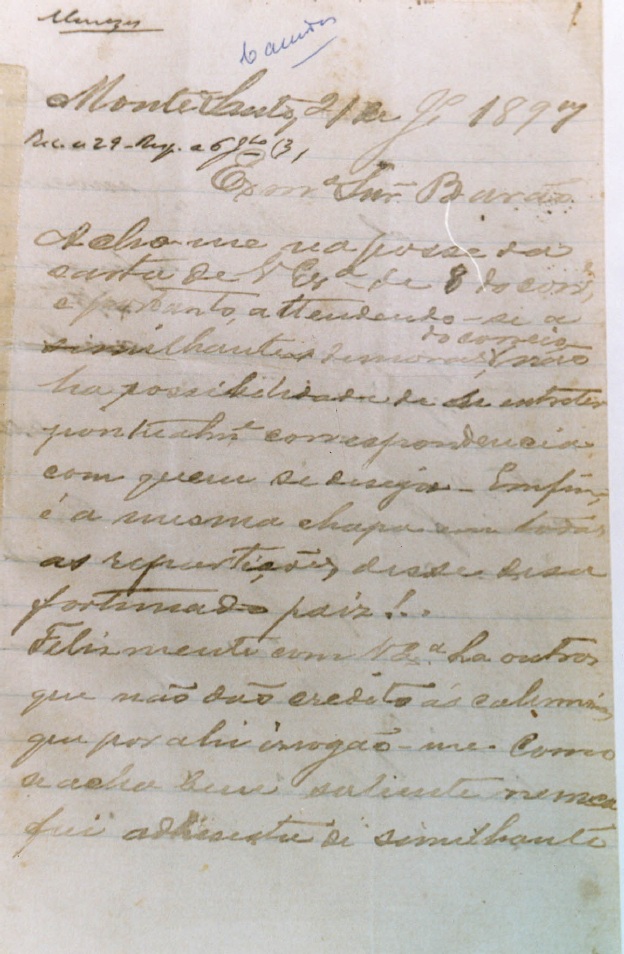 Menezes
Canudos
Monte Santo, 21 de Jl 1897
Rec. a 29 - Resp. a 6
Exmº Snr. Barão
Acho-me na posse da
carta de V Exª de 8 do corr,
e portanto, attendendo-se a
do correio
similhantes demoras, não
ha possibilidade de se entreter
pontualmte correspondencia
com quem se deseja. Emfim,
é a mesma chapa em todas
as repartições, desse desa
fortunado paiz!..
Felizmente com V Exª ha outros
que não dão credito ás calumnias
que por ahi irrogão-me. Como
se acha bem saliente nunca
fui adherente di similhante